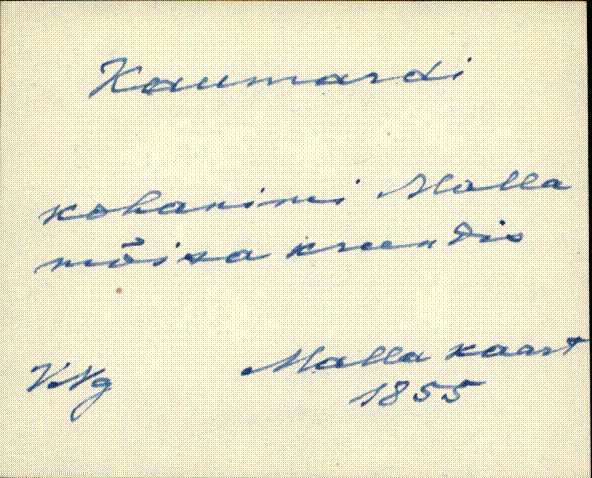 Kaumardi
kohanimi Malla
mõisa kreendis
VNg
Malla kaart
1855